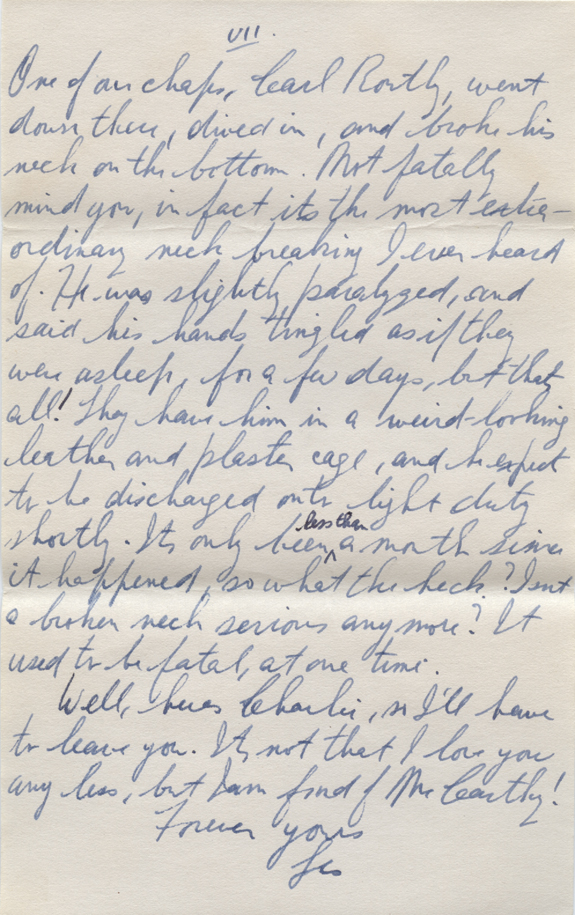 VII.
One of our chaps, Carl Rortly, went
down there, dived in, and broke his
neck on the bottom. Not fatally
mind you, in fact its the most extra-
ordinary neck breaking I ever heard
of. He was slightly paralyzed, and
said his hands tingled as if they
were asleep, for a few days, but that
all! They have him in a weird-looking
leather and plaster cage, and he expect
to be discharged onto light duty
shortly. Its only been less than a month since
it happened, so what the heck? Isnt
a broken neck serious anymore? It
used to be fatal, at one time.
Well, heres Charlie, so I'll have
to leave you. Its not that I love you
any less, but I am fond of McCarthy!
Forever yours
Les